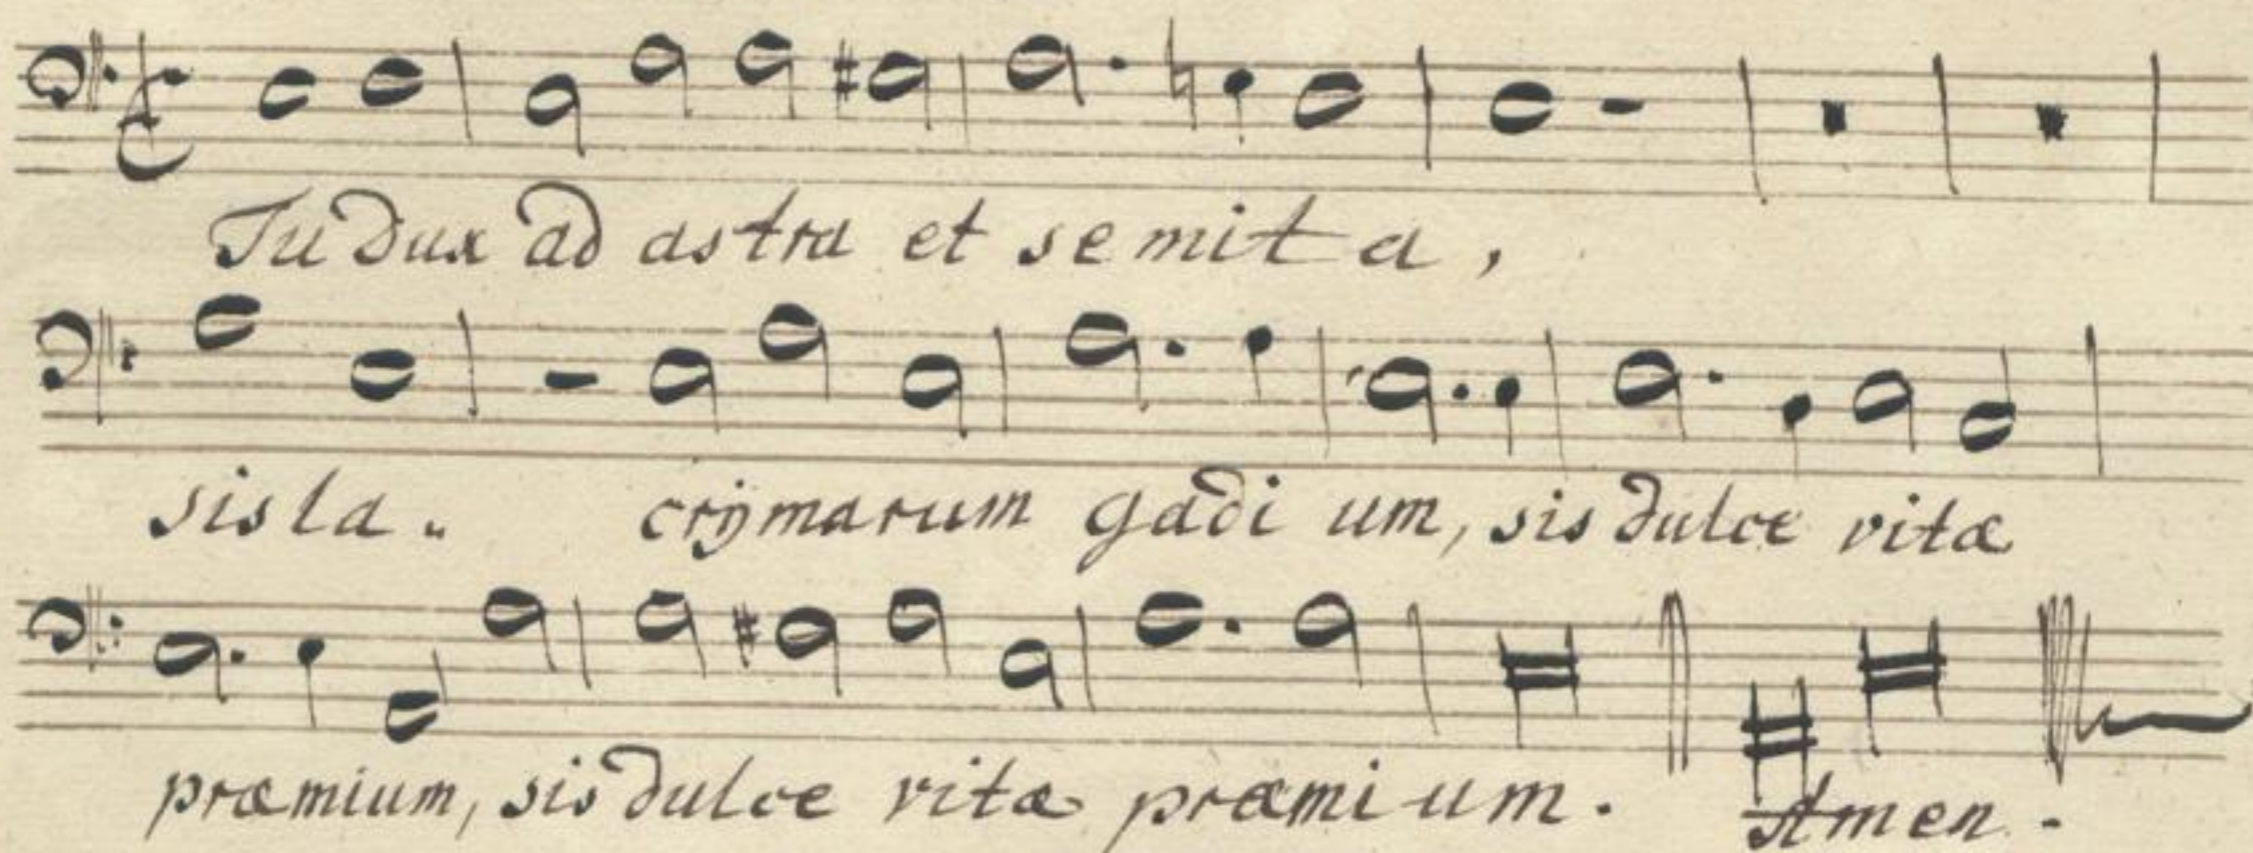 Tu dux ad astra et semita,
sis la- crÿmarum gadi um, sis dulce vitæ
præmium, sis dulce vitæ præmi um. Amen.